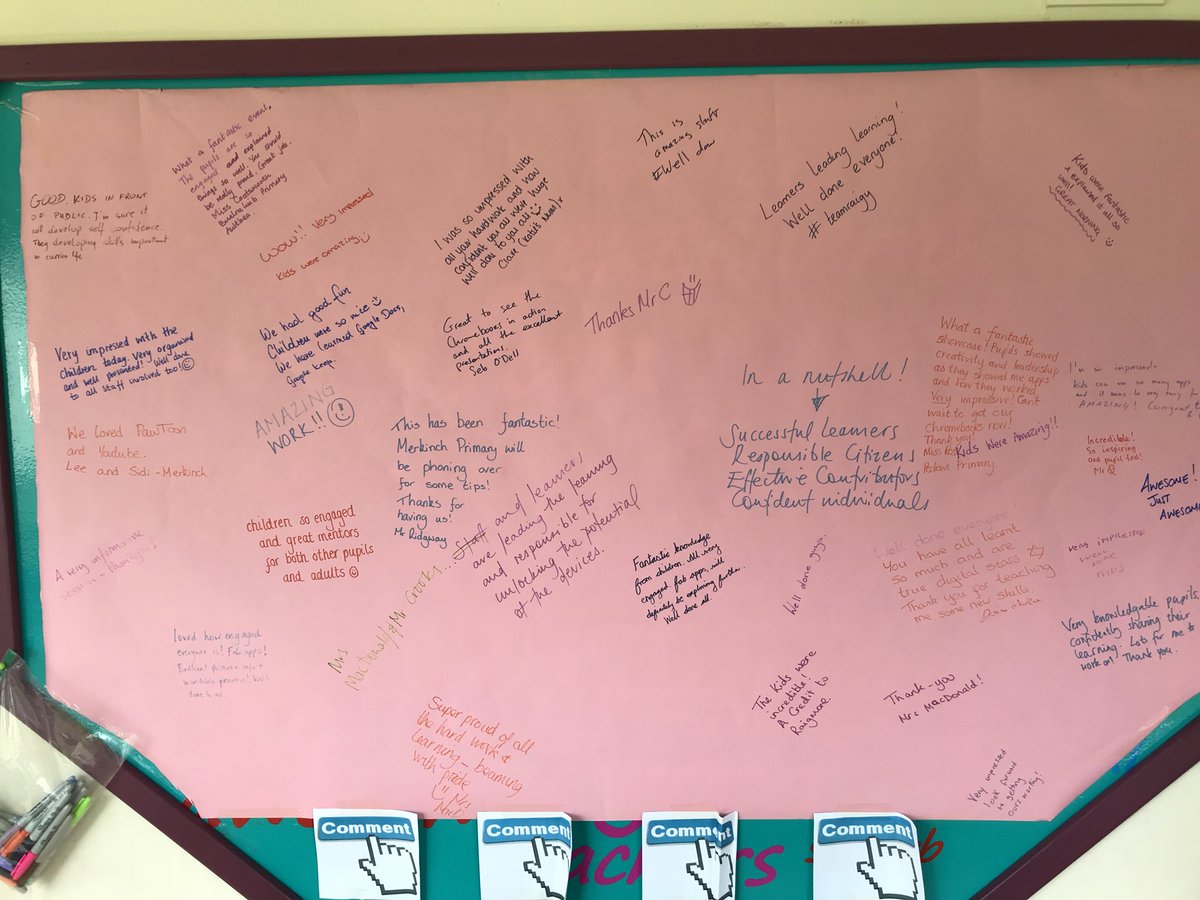 What a fantastic event.
The pupils are so
engaged and explained
things so well. You should
be really proud. Great job.
Miss
Primary
GOOD. KIDS IN FRONT
OF PUBLIC. I'm sure it
will develop self confidence.
They developing skills important
in
WOW!! Very impressed
Kids were amazing
I was so impressed with
all your hardwork and how
confident you all were. Huge
well done to you all
Clare
This is
amazing stuff
#Well done
Learners Leading Learning!
Well done everyone!
# teamraiggy
Kids were fantastic
& explained it all so
well!
GREAT MORNING
Very impressed with the
children today. Very organised
and well presented! Well done
to all staff involved too!
We had good fun
Children were so nice
We have learned Google Docs,
Google Keep.
Great to see the
Chromebooks in action
and all the excellent
presentations.
Seb O'Dell
Thanks Mr C
AMAZING
WORK!!
We Loved PowToon
and Youtube.
Lee and Sidi-Merkinch
This has been fantastic!
Merkinch Primary will
be phoning over
for some tips!
Thanks for
having us!
Mr Ridgway
In a nutshell!
Successful Learners
Responsible Citizens
Effective Contributors
Confident individuals
What a fantastic
showcase! Pupils showed
creativity and leadership
as they showed me apps
and how they worked.
Very impressive! Can't
wait to get our
Chromebooks now!
Thank you!
Miss
Primary.
Kids were Amazing!!
I'm so impressed-
kids can use so many apps
and it seems to be very easy for
AMAZING!
Incredible!
So inspiring
and pupil led!
Mr Q
AWESOME!
JUST
AWESOME
A very informative
session - thankyou!
children so engaged
and great mentors
for both other pupils
and adults
Mrs
MacDonald & Mr Crook!...
Staff and learners
are leading the learning
and responsible for
unlocking the potential
of the devices.
Fantastic knowledge
from children. All very
engaged. Fab apps, will
definitely be exploring further.
Well done all.
Well done guys.
Well done everyone.
You have all learnt
so much and are
true digital stars
Thank you for teaching
me some new skills.
VERY IMPRESSED
WELL
DONE
Very knowledgable pupils,
confidently sharing their
learning. Lots for me to
work on! Thank you.
Loved how engaged
everyone is! Fab apps!
Brilliant posters - info +
The Kids were
incredible!
A Credit to
Raigmore
Thank-you
Mrs MacDonald!
Super proud of all
the hard work &
learning - beaming
with pride
Mrs
Very impressed
look forward
to getting
ours working!
Comment
Comment
Comment
Comment